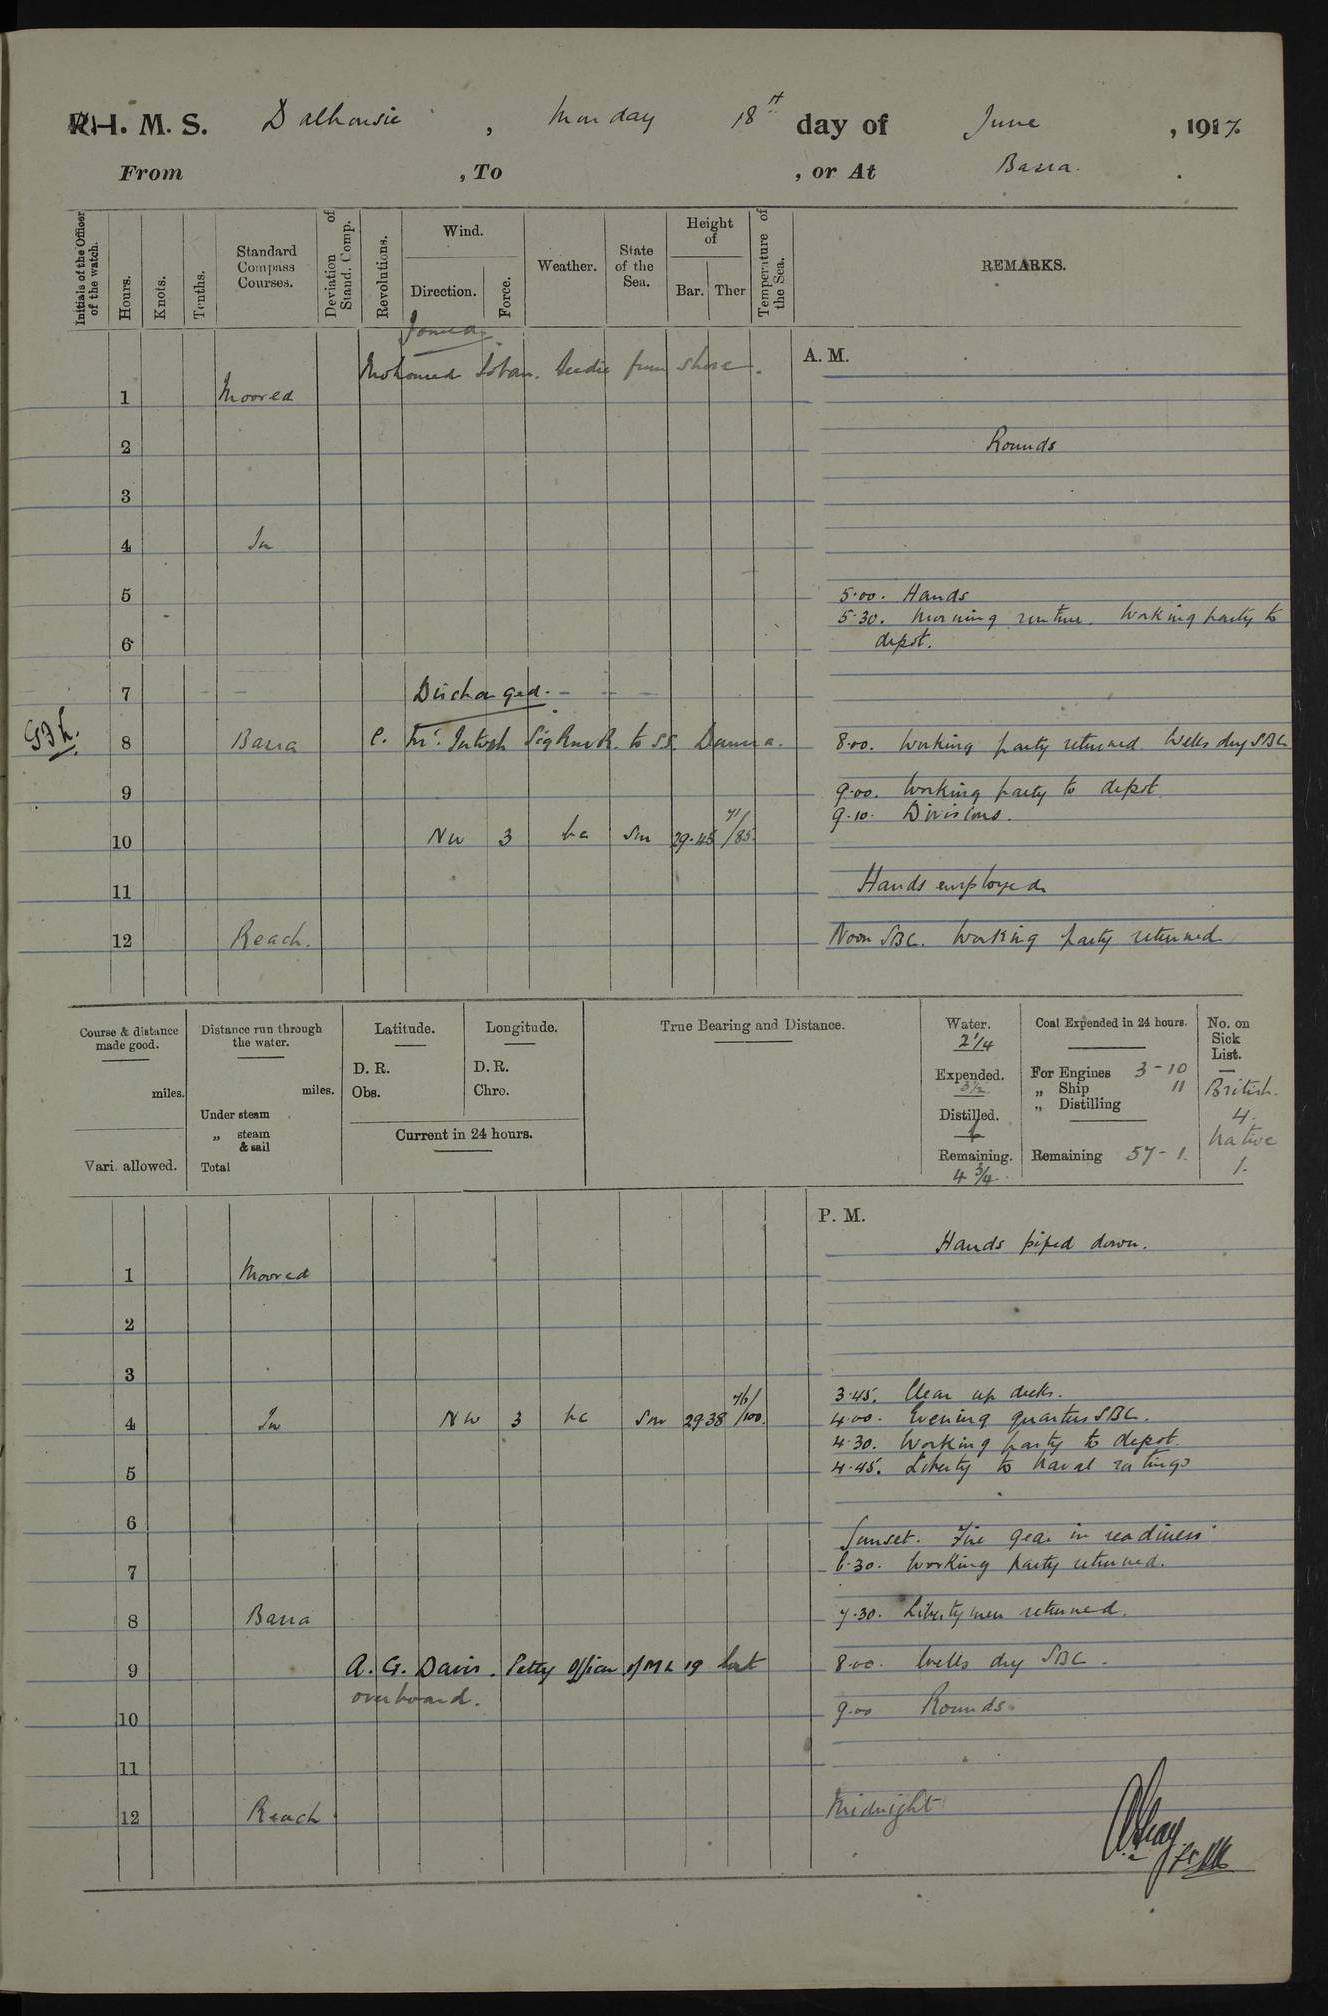 H. M. S. Dalhousie, Monday 18th day of June, 1917.
From , To , or At Basra.
Initials of the Officer of the watch.
Hours.
Knots.
Tenths.
Standard Compass Courses.
Deviation of Stand. Comp.
Revolutions.
Wind.
Direction.
Force.
Weather.
State of the Sea.
Height of
Bar. Ther
Temperature of the Sea.
REMARKS.
Joined
Mohomed seedie from shore.
A. M.
1 Moored
2 Rounds
3
4 In
5 5.00. Hands
5.30. Morning routine. Working party to
6 depot.
7 Discharged.
8 Basra to SS. 8.00. Working party returned Wells dry SBC
9 9.00. Working party to depot
9.10. Divisions.
10 NW 3 bc Sm 29.45 71/85
11 Hands employed
12 Reach. Noon SBC. Working party returned
Course & distance made good.
miles.
Vari. allowed.
Distance run through the water.
miles.
Under steam
„ steam & sail
Total
Latitude.
D. R.
Obs.
Longitude.
D. R.
Chro.
Current in 24 hours.
True Bearing and Distance.
Water.
2 1/4
Expended.
3 1/2
Distilled.
Remaining.
4 3/4
Coal Expended in 24 hours.
For Engines 3-10
„ Ship 11
„ Distilling
Remaining 57-1.
No. on Sick List.
British.
4.
Native
1.
P. M.
Hands piped down.
1 Moored
2
3
3.45. Clear up decks.
4 In NW 3 bc Sm 29 38 76/100. 4.00. Evening quarters SBC.
4.30. Working party to depot.
5 4.45. Liberty to Naval ratings
6
Sunset. Fire gear in readiness
7 6.30. Working party returned.
8 Basra 7.30. Liberty men returned.
9 A. G. Davis. Petty Officer of ML 19 lost 8.00. Wells dry SBC.
overboard. 9.00 Rounds
10
11
12 Reach Midnight